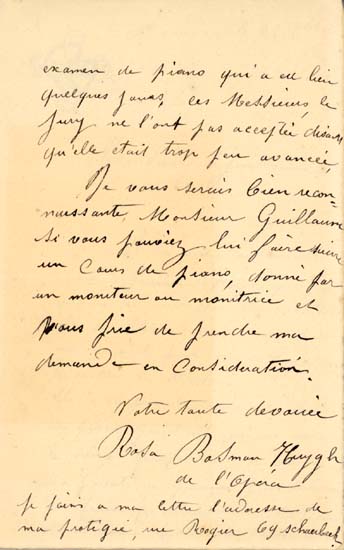 examen de piano qui a eu lieu
quelques jours, ces Messieurs, le
Jury ne l'ont pas acceptée disant
qu'elle etait trop peu avancée,
Je vous serais bien recon-
naissante, Monsieur Guillaume
si vous pouviez lui faire suivre
un Cours de piano, donné par
un moniteur ou monitrice et
vous prie de prendre ma
demande en Considération.
Votre toute dévouée
Rosa Bosman Huygh
de l'Opéra
je joins a ma lettre l'adresse de
ma protégée, rue Rogier 69 schaerbeek